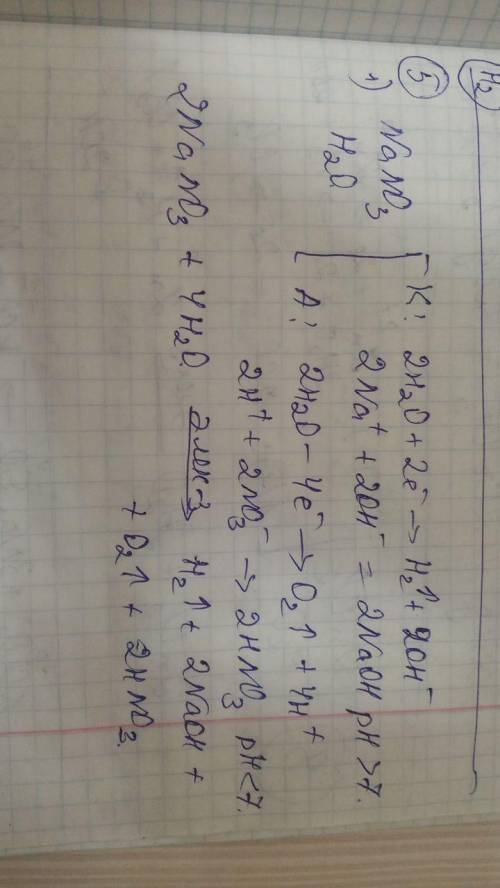 H₂
⑤
1) NaNO₃ K: 2H₂O + 2e⁻ → H₂↑ + 2OH⁻
H₂O 2Na⁺ + 2OH⁻ = 2NaOH pH >7.
A: 2H₂O - 4e⁻ → O₂↑ + 4H⁺
2H⁺ + 2NO₃⁻ → 2HNO₃ pH<7.
2NaNO₃ + 4H₂O элек-з → H₂↑ + 2NaOH +
+ O₂↑ + 2HNO₃.